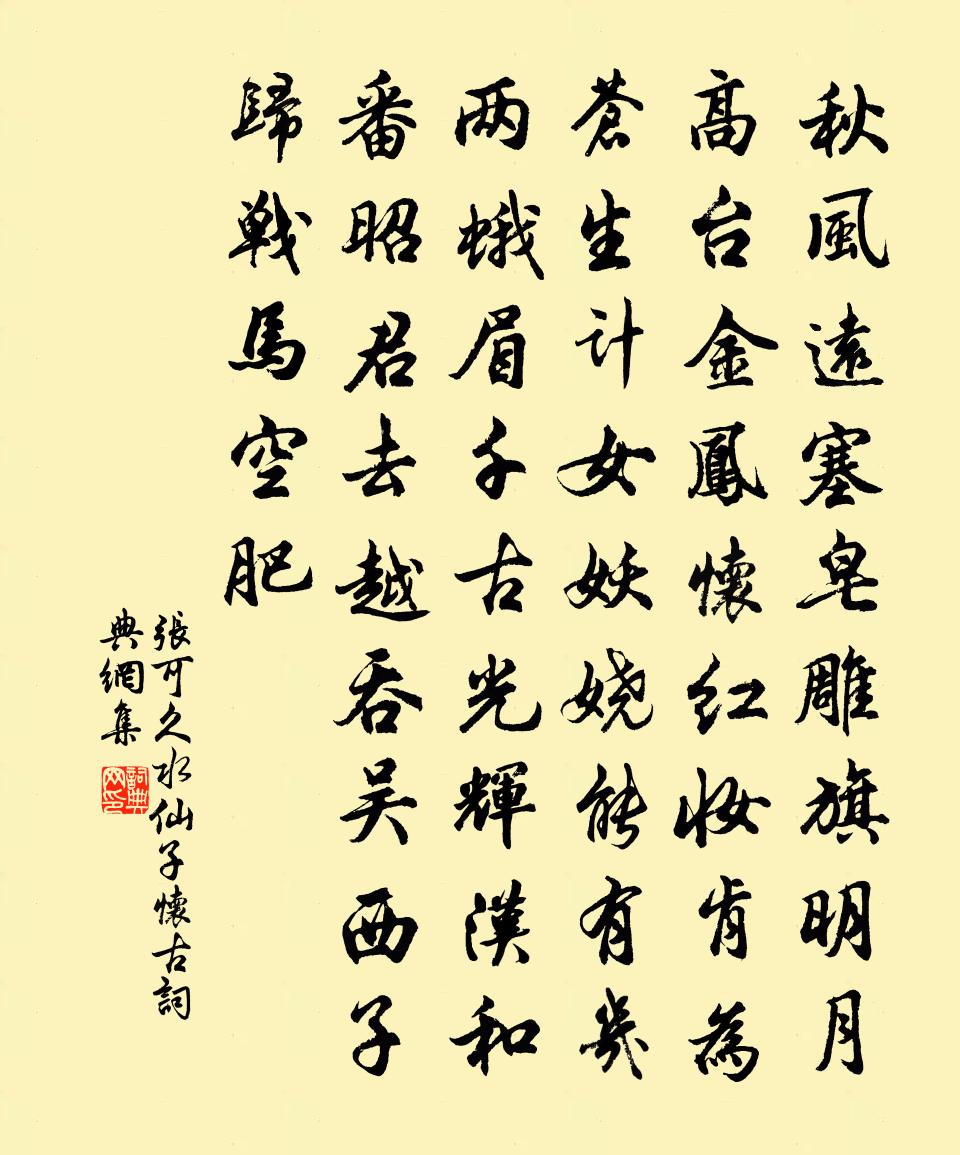 秋風遠塞皂雕旗明月
高台金鳳懷红妆肯為
蒼生计女妖娆能有幾
两蛾眉千古光輝漢和
番昭君去越吞吴西子
歸戰馬空肥
張可久水仙子懷古詞
典網集
詞典
网印